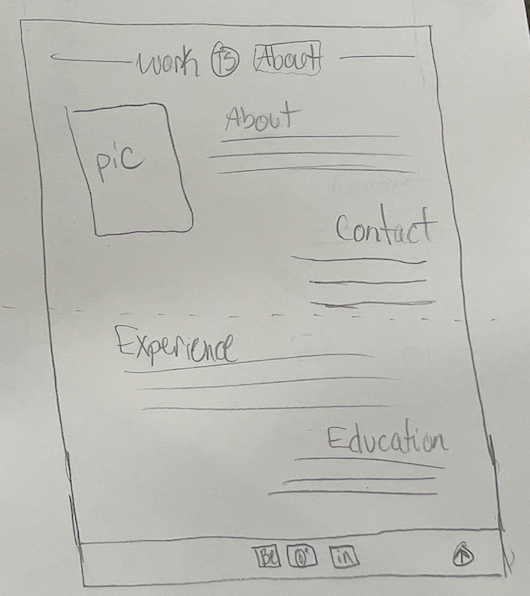 Work TS About
pic
About
Contact
Experience
Education
Be in